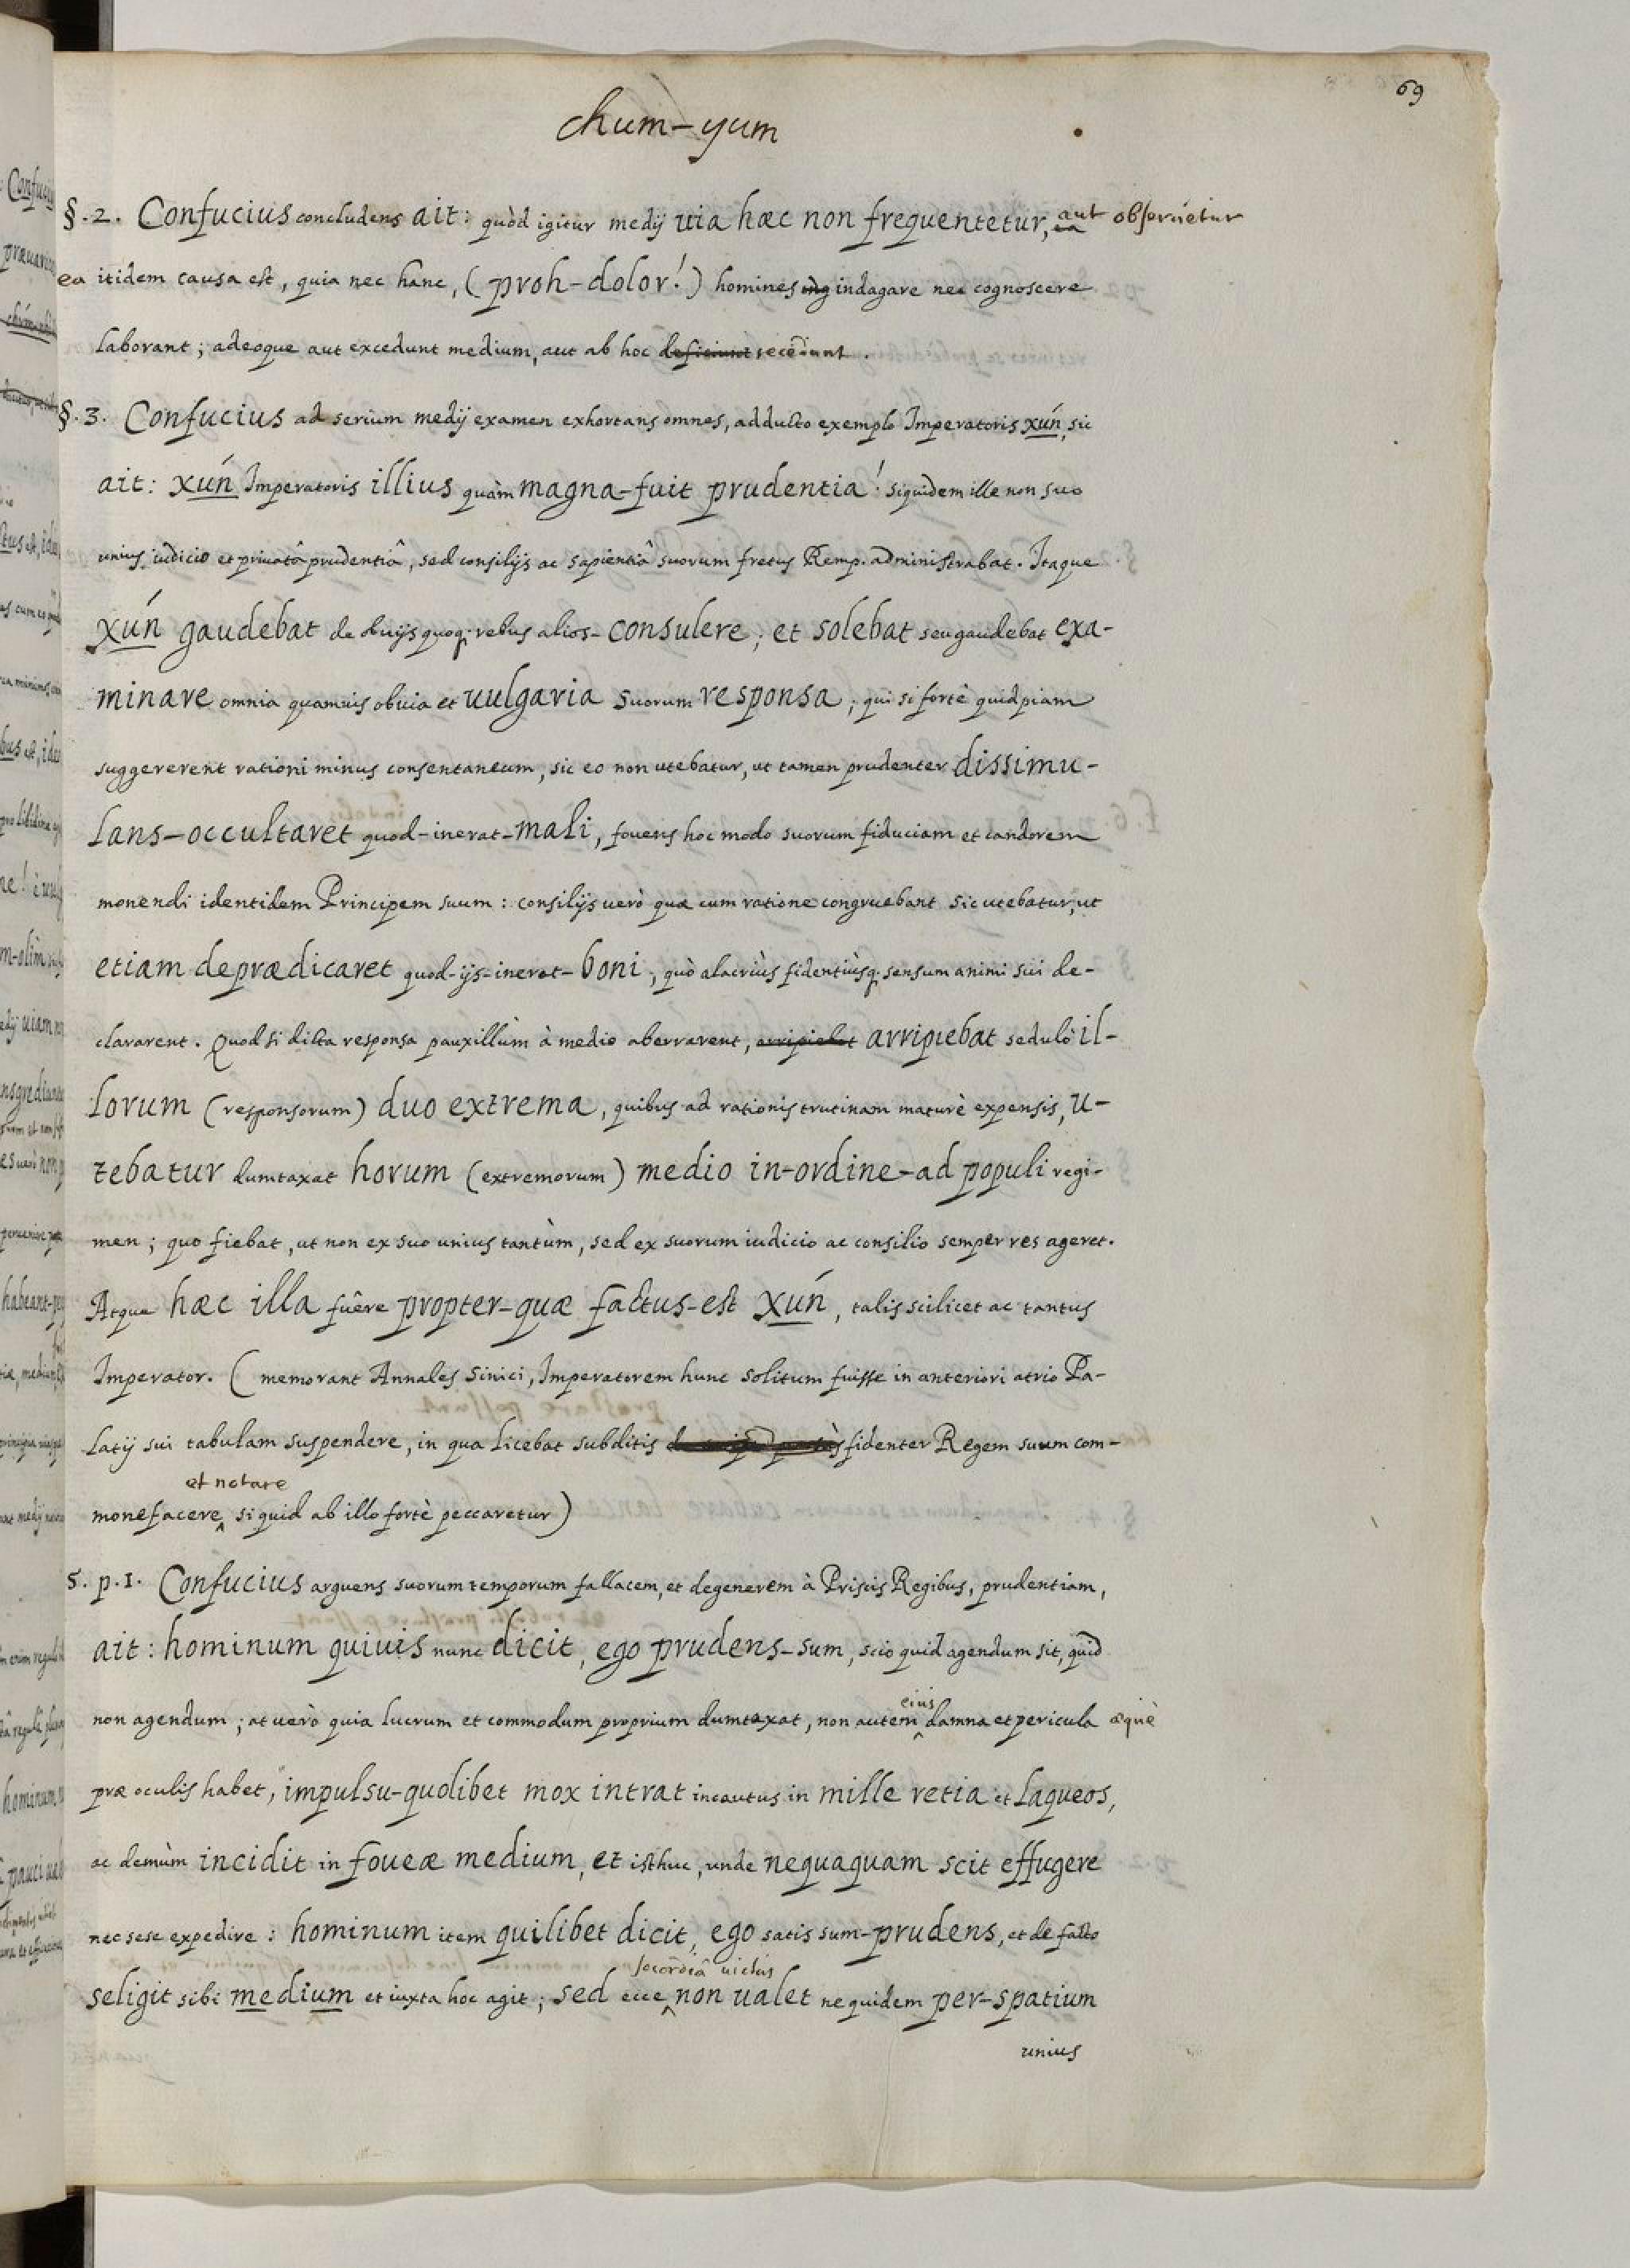 69
chum-yum
§.2. Confucius concludens ait: quòd igitur medij uia hæc non frequentetur, aut obseruetur
ea itidem causa est, quia nec hanc, (proh-dolor!) homines indagare nec cognoscere
laborant; adeoque aut excedunt medium, aut ab hoc deficiunt recedunt.
§.3. Confucius ad serium medij examen exhortans omnes, adducto exemplo Imperatoris xún, sic
ait: xún Imperatoris illius quàm magna-fuit prudentia! siquidem ille non suo
unius iudicio et priuatâ prudentiâ, sed consilijs ac sapientiâ suorum fretus Remp. administrabat. Itaque
xún gaudebat de obuijs quoq. rebus alios-consulere; et solebat seu gaudebat exa-
minare omnia quamuis obuia et uulgaria suorum responsa; qui si fortè quidpiam
suggererent rationi minus consentaneum, sic eo non utebatur, ut tamen prudenter dissimu-
lans-occultaret quod-inerat-mali, fouens hoc modo suorum fiduciam et candorem
monendi identidem Principem suum: consilijs uerò quæ cum ratione congruebant sic utebatur, ut
etiam deprædicaret quod-ijs-inerat-boni, quò alacriùs fidentiùsq. sensum animi sui de-
clararent. Quod si dicta responsa pauxillùm à medio aberrarent, arripiebat arripiebat sedulò il-
lorum (responsorum) duo extrema, quibus ad rationis trutinam maturè expensis, u-
tebatur dumtaxat horum (extremorum) medio in-ordine-ad populi regi-
men; quo fiebat, ut non ex suo unius tantùm, sed ex suorum iudicio ac consilio semper res ageret.
Atque hæc illa fuêre propter-quæ factus-est xún, talis scilicet ac tantus
Imperator. (memorant Annales Sinici, Imperatorem hunc solitum fuisse in anteriori atrio Pa-
latij sui tabulam suspendere, in qua licebat subditis fidenter Regem suum com-
et notare
monefacere, si quid ab illo fortè peccaretur)
5. p.1. Confucius arguens suorum temporum fallacem, et degenerem à Priscis Regibus, prudentiam,
ait: hominum quiuis nunc dicit, ego prudens-sum, scio quid agendum sit, quid
eius
non agendum; at uerò quia lucrum et commodum proprium dumtaxat, non autem damna et pericula æquè
præ oculis habet, impulsu-quolibet mox intrat incautus in mille retia et laqueos,
ac demùm incidit in foueæ medium, et isthuc, unde nequaquam scit effugere
nec sese expedire: hominum item quilibet dicit, ego satis sum-prudens, et de facto
socordiâ uictus
seligit sibi medium et iuxta hoc agit; sed ecce non ualet ne quidem per-spatium
unius